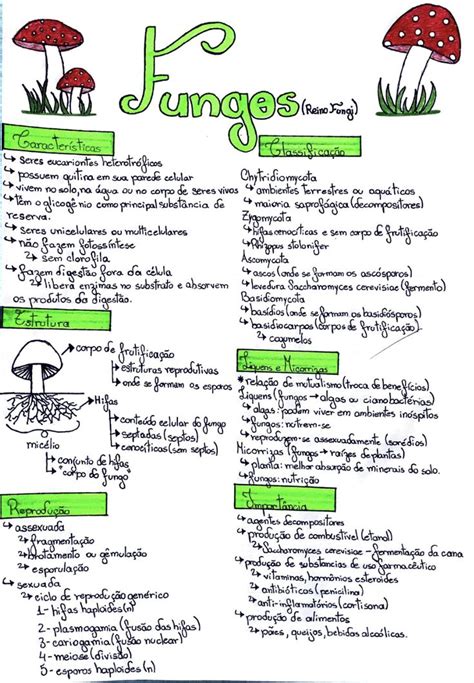 Fungos (Reino Fungi)
Características
↳ Seres eucariontes heterotróficos
↳ possuem quitina em sua parede celular
↳ vivem no solo, na água ou no corpo de seres vivos
↳ têm o glicogênio como principal substância de
reserva.
↳ Seres unicelulares ou multicelulares
↳ não fazem fotossíntese
↳ sem clorofila
↳ fazem digestão fora da célula
↳ libera enzimas no substrato e absorvem
os produtos da digestão.
Estrutura
corpo de frutificação
↳ estruturas reprodutivas
↳ onde se formam os esporos
Hifas
↳ conteúdo celular do fungo
↳ septadas (septos)
↳ cenocíticas (sem septos)
micélio
↳ conjunto de hifas
↳ "corpo do fungo"
Reprodução
↳ assexuada
↳ fragmentação
↳ brotamento ou gemulação
↳ esporulação
↳ sexuada
↳ ciclo de reprodução genérico
1- hifas haploides (n)
2- plasmogamia (fusão das hifas)
3- cariogamia (fusão nuclear)
4- meiose (divisão)
5- esporos haploides (n)
Classificação
Chytridiomycota
↳ ambientes terrestres ou aquáticos
↳ maioria saprofágica (decompositores)
Zygomycota
↳ hifas cenocíticas e sem corpo de frutificação
↳ Rhizopus stolonifer
Ascomycota
↳ ascos (onde se formam os ascósporos)
↳ levedura Saccharomyces cerevisiae (fermento)
Basidiomycota
↳ basídios (onde se formam os basidiósporos)
↳ basidiocarpos (corpos de frutificação)
↳ cogumelos
Liquens e Micorrizas
* relação de mutualismo (troca de benefícios)
Liquens (fungos → algas ou cianobactérias)
↳ algas: podem viver em ambientes inóspitos
↳ fungos: nutrem-se
↳ reproduzem-se assexuadamente (sorédios)
Micorrizas (fungos → raízes de plantas)
↳ planta: melhor absorção de minerais do solo.
↳ fungos: nutrição
Importância
↳ agentes decompositores
↳ produção de combustível (etanol)
↳ Saccharomyces cerevisiae - fermentação da cana
↳ produção de substâncias de uso farmacêutico
↳ vitaminas, hormônios esteroides
↳ antibióticos (penicilina)
↳ anti-inflamatórios (cortisona)
↳ produção de alimentos
↳ pães, queijos, bebidas alcoólicas.